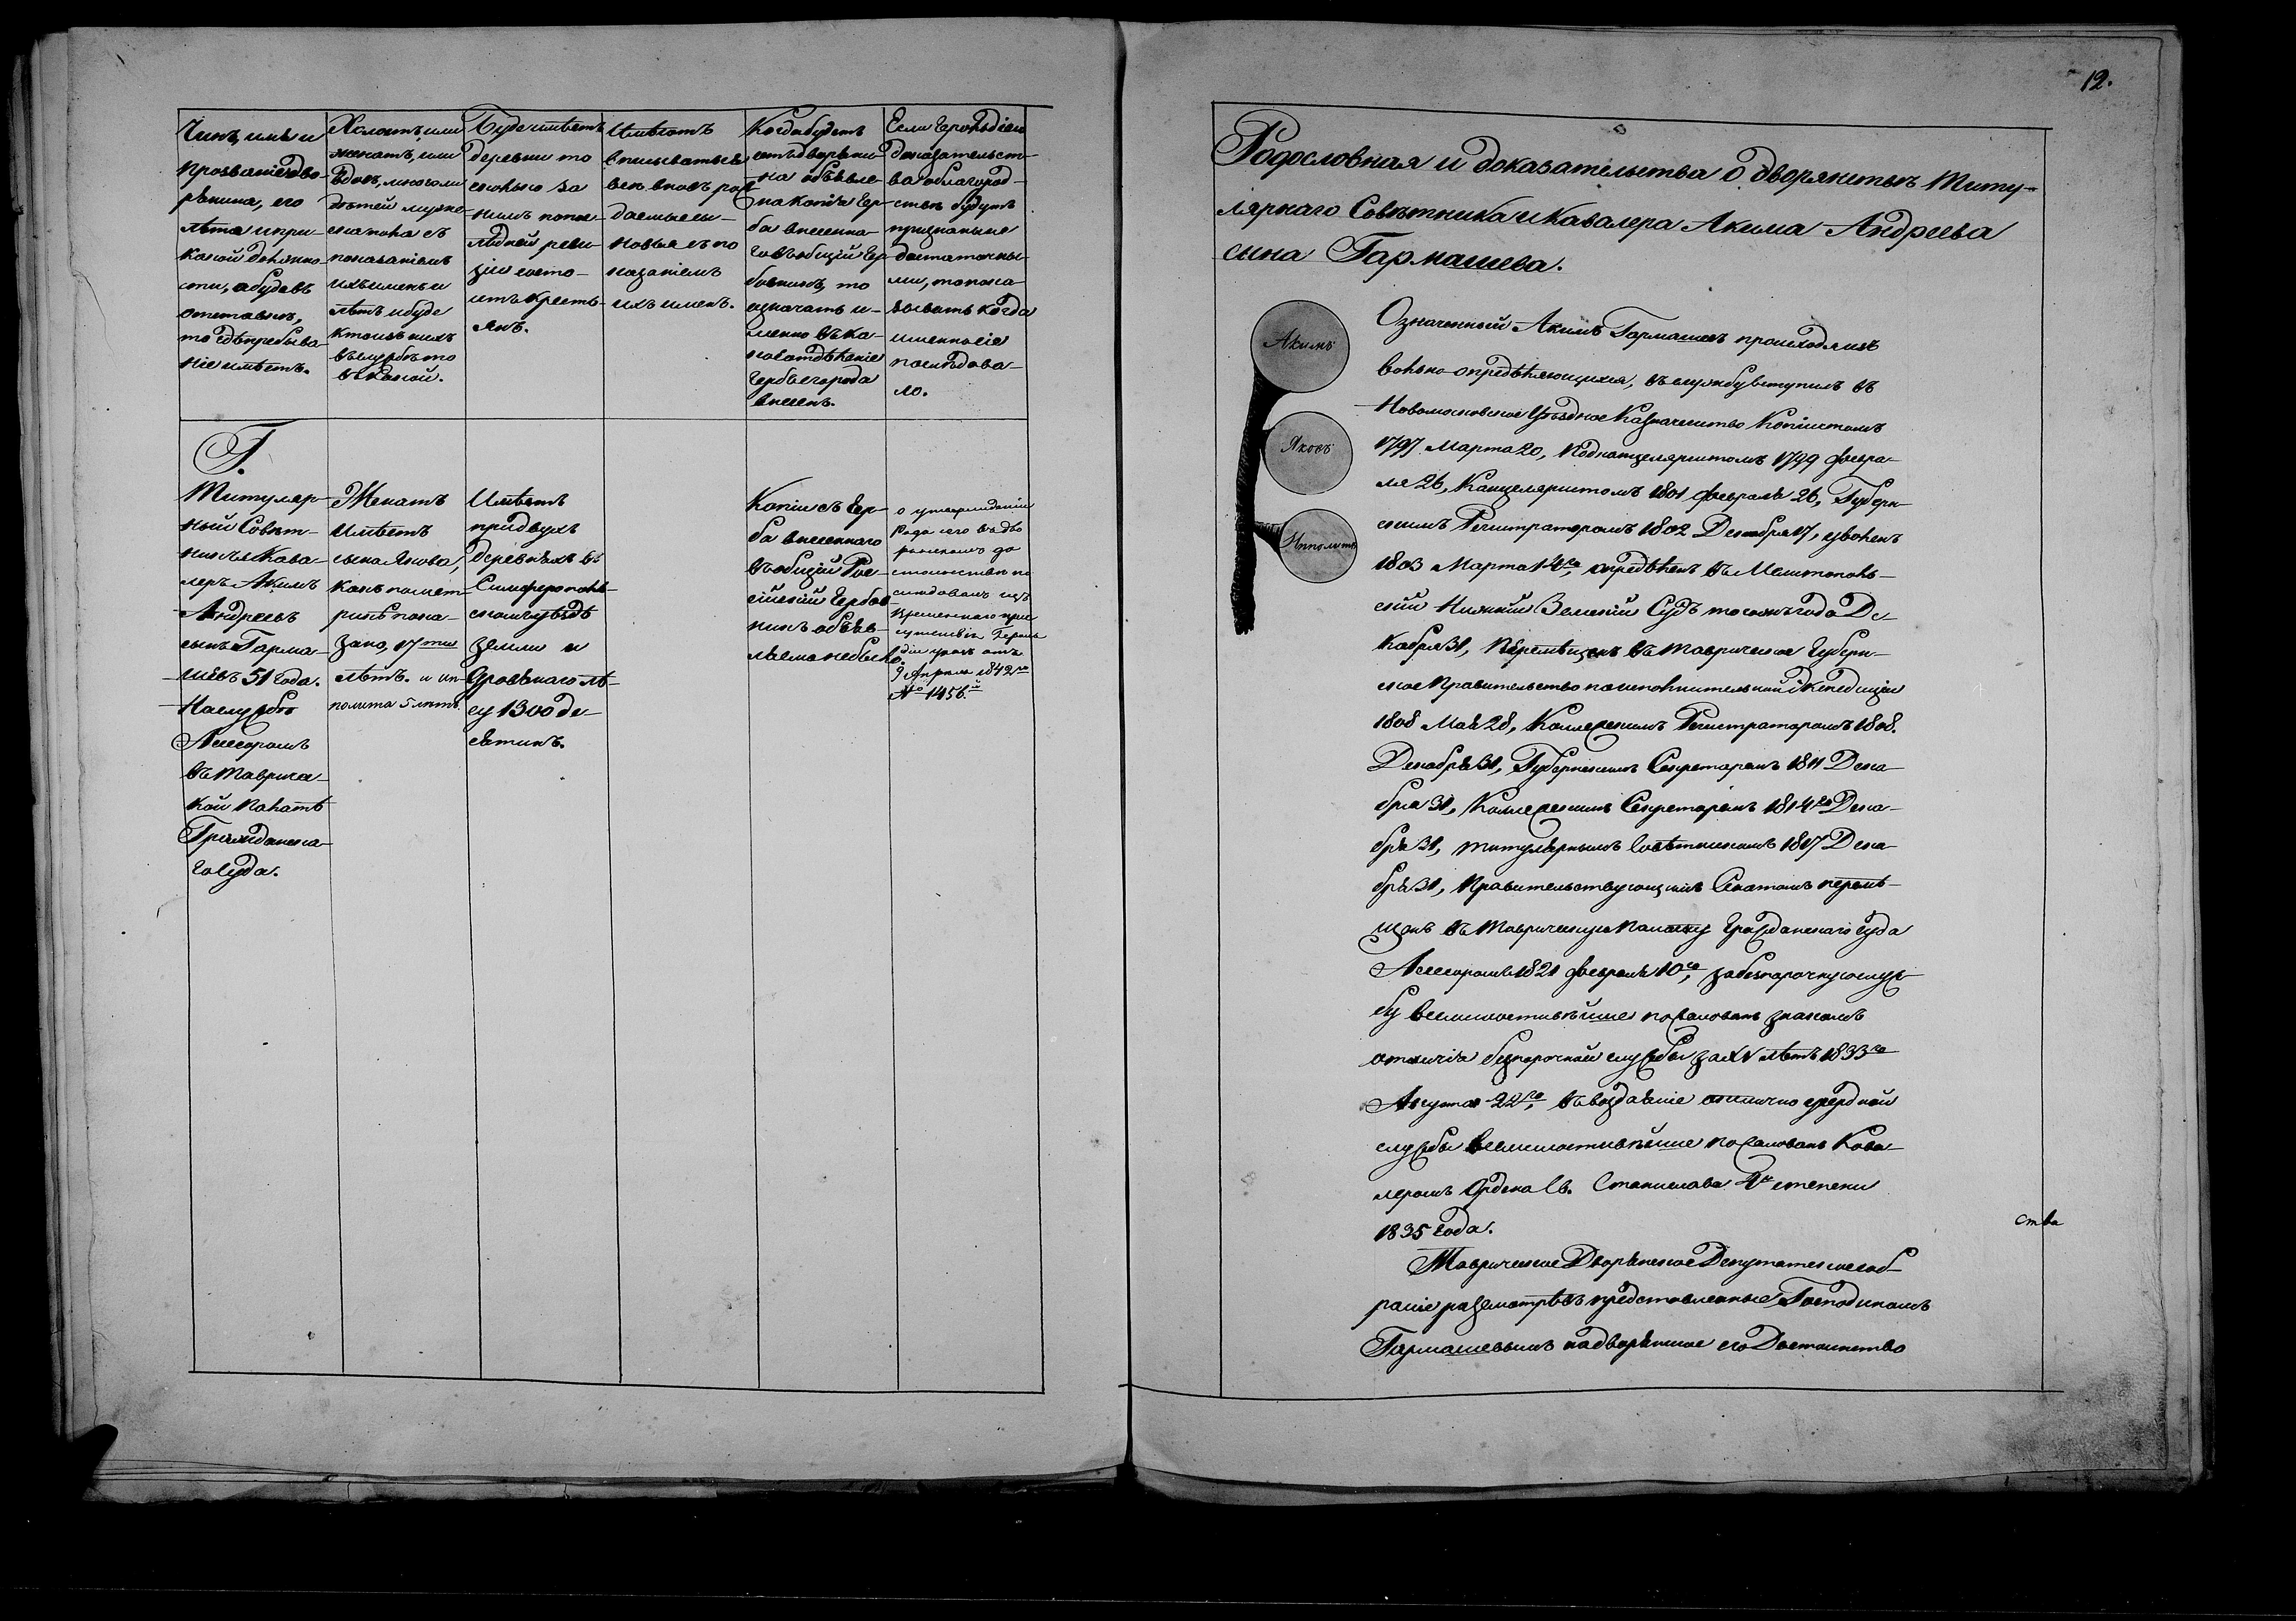 Чинъ, имя и
прозваніе дво-
рянина, его
лѣта и при
какой должно-
сти, а буде въ
отставкѣ,
то гдѣ пребыва-
ніе имѣетъ.
Холостъ или
женатъ, или
вдовъ, много ли
дѣтей муже-
ска пола съ
показаніемъ
ихъ именъ и
лѣтъ и буде
кто изъ нихъ
въ службѣ то
въ какой.
Буде имѣетъ
деревни то
сколько за
нимъ по послѣ-
лѣдней реви-
зіи состо-
итъ кресть-
янъ.
Имѣютъ
вписываться
всѣ вновь рож
даемые сы-
новья съ по
казаніемъ
ихъ именъ.
Когда будетъ
отъ дворяни-
на объявле-
на копія гер-
ба внесенна-
го въ общій гер
бовникъ, то
означать и-
менно въ ка-
ковое отдѣленіе
гербъ его рода
внесенъ.
Если Герольдіею
доказательст-
ва о благород-
ствѣ будутъ
признанные
достаточны-
ми, то пока-
зывать когда
именно сіе
послѣдова-
ло.
Г.
Титуляр-
ный Совѣт-
никъ и Кава-
леръ Акимъ
Андреевъ
сынъ Гарма-
шевъ 51 года.
На службѣ
Ассесоромъ
въ Тавричес-
кой Палатѣ
Гражданска-
го Суда.
Женатъ
имѣетъ
сына Якова,
какъ по мет-
рикѣ пока-
зано, 17ти
лѣтъ. и Ип-
полита 5 лѣтъ.
Имѣетъ
при двухъ
деревняхъ въ
Симферополь-
скомъ уѣздѣ
земли и
дровянаго лѣ-
су 1300 де-
сятинъ.
Копіи съ гер-
ба внесеннаго
въ общій Рос-
сійскій Гербов-
никъ объяв-
ляемо не было.
о утвержденіи
рода сего въ дво
рянскомъ до
стоинствѣ по
слѣдовалъ изъ
Временнаго при
сутствія Героль
діи указъ отъ
9 Апрѣля 1842го
№ 1456.й
12.
Родословная и доказательства о дворянствѣ Титу-
лярнаго Совѣтника и Кавалера Акима Андреева
сына Гармашева.
Акимъ
Яковъ
Ипполитъ
Означенный Акимъ Гармашевъ происходя изъ
вольно-опредѣляющихся, въ службу вступилъ въ
Новомосковское Уѣздное Казначейство Копіистомъ
1797 Марта 20, Подканцеляристомъ 1799 Февра-
ля 26, Канцеляристомъ 1801 Февраля 26, Губерн-
скимъ Регистраторомъ 1802 Декабря 17, уволенъ
1803 Марта 14го, опредѣленъ въ Мелитополь-
скій Нижній Земскій Судъ того жъ года Де-
кабря 31, Перемѣщенъ въ Таврическое Губерн-
ское Правительство по исполнительной Экспедиціи
1808 Мая 28, Коллежскимъ Регистраторомъ 1808.
Декабря 31, Губернскимъ Секретаремъ 1811 Дека-
бря 31, Коллежскимъ Секретаремъ 1814го Дека-
бря 31, Титулярнымъ Совѣтникомъ 1817 Дека-
бря 31, Правительствующимъ Сенатомъ перемѣ-
щенъ въ Таврическую Палату Гражданскаго Суда
Ассесоромъ 1821 Февраля 10го, за безпорочную служ-
бу Всемилостивѣйше пожалованъ знакомъ
отличія безпорочной службы за XV лѣтъ 1833го
Августа 22го, въ воздаяніе отлично усердной
службы Всемилостивѣйше пожалованъ Кава-
леромъ Ордена Св. Станислава 4й степени
1835 года.
Таврическое Дворянское Депутатское соб-
раніе разсмотрѣвъ представленные Господиномъ
Гармашевымъ на дворянское его Достоинство
ства